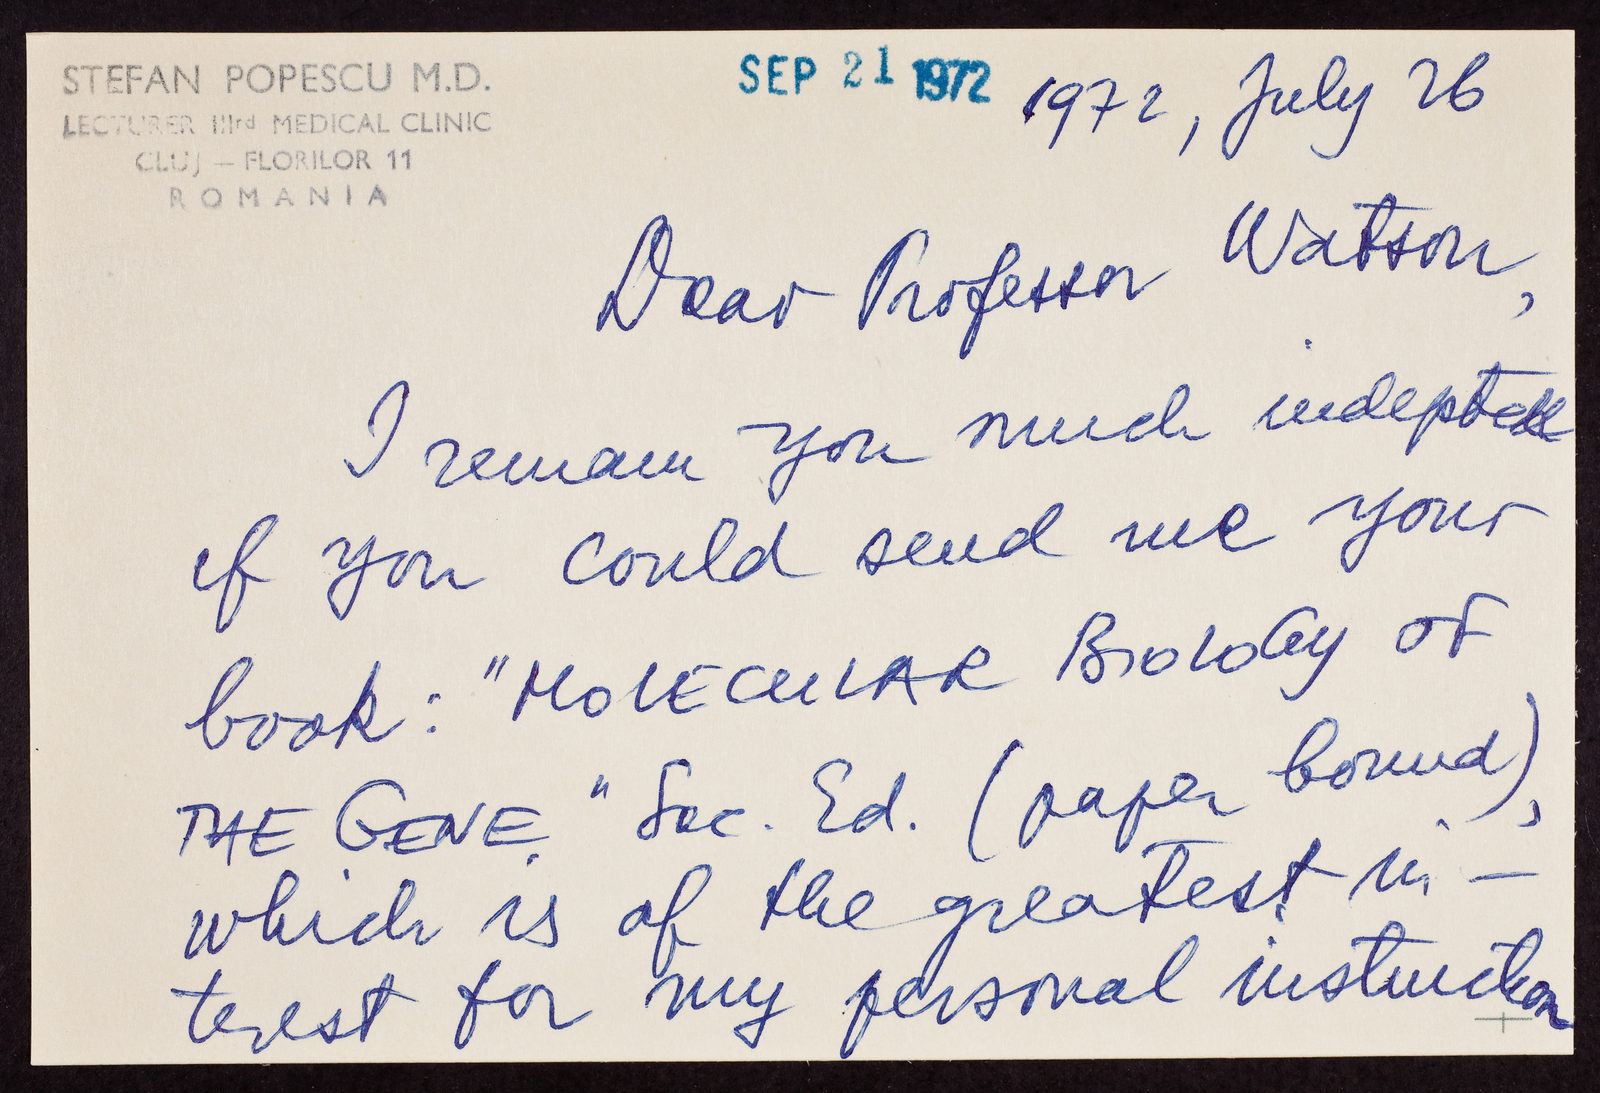 STEFAN POPESCU M.D.
LECTURER IIIrd MEDICAL CLINIC
CLUJ — FLORILOR 11
ROMANIA
SEP 21 1972
1972, July 26
Dear Professor Watson,
I remain you much
if you could send me your
book: "MOLECULAR BIOLOGY OF
THE GENE." Sec. Ed. (paper bound),
which is of the greatest in-
terest for my personal instruction